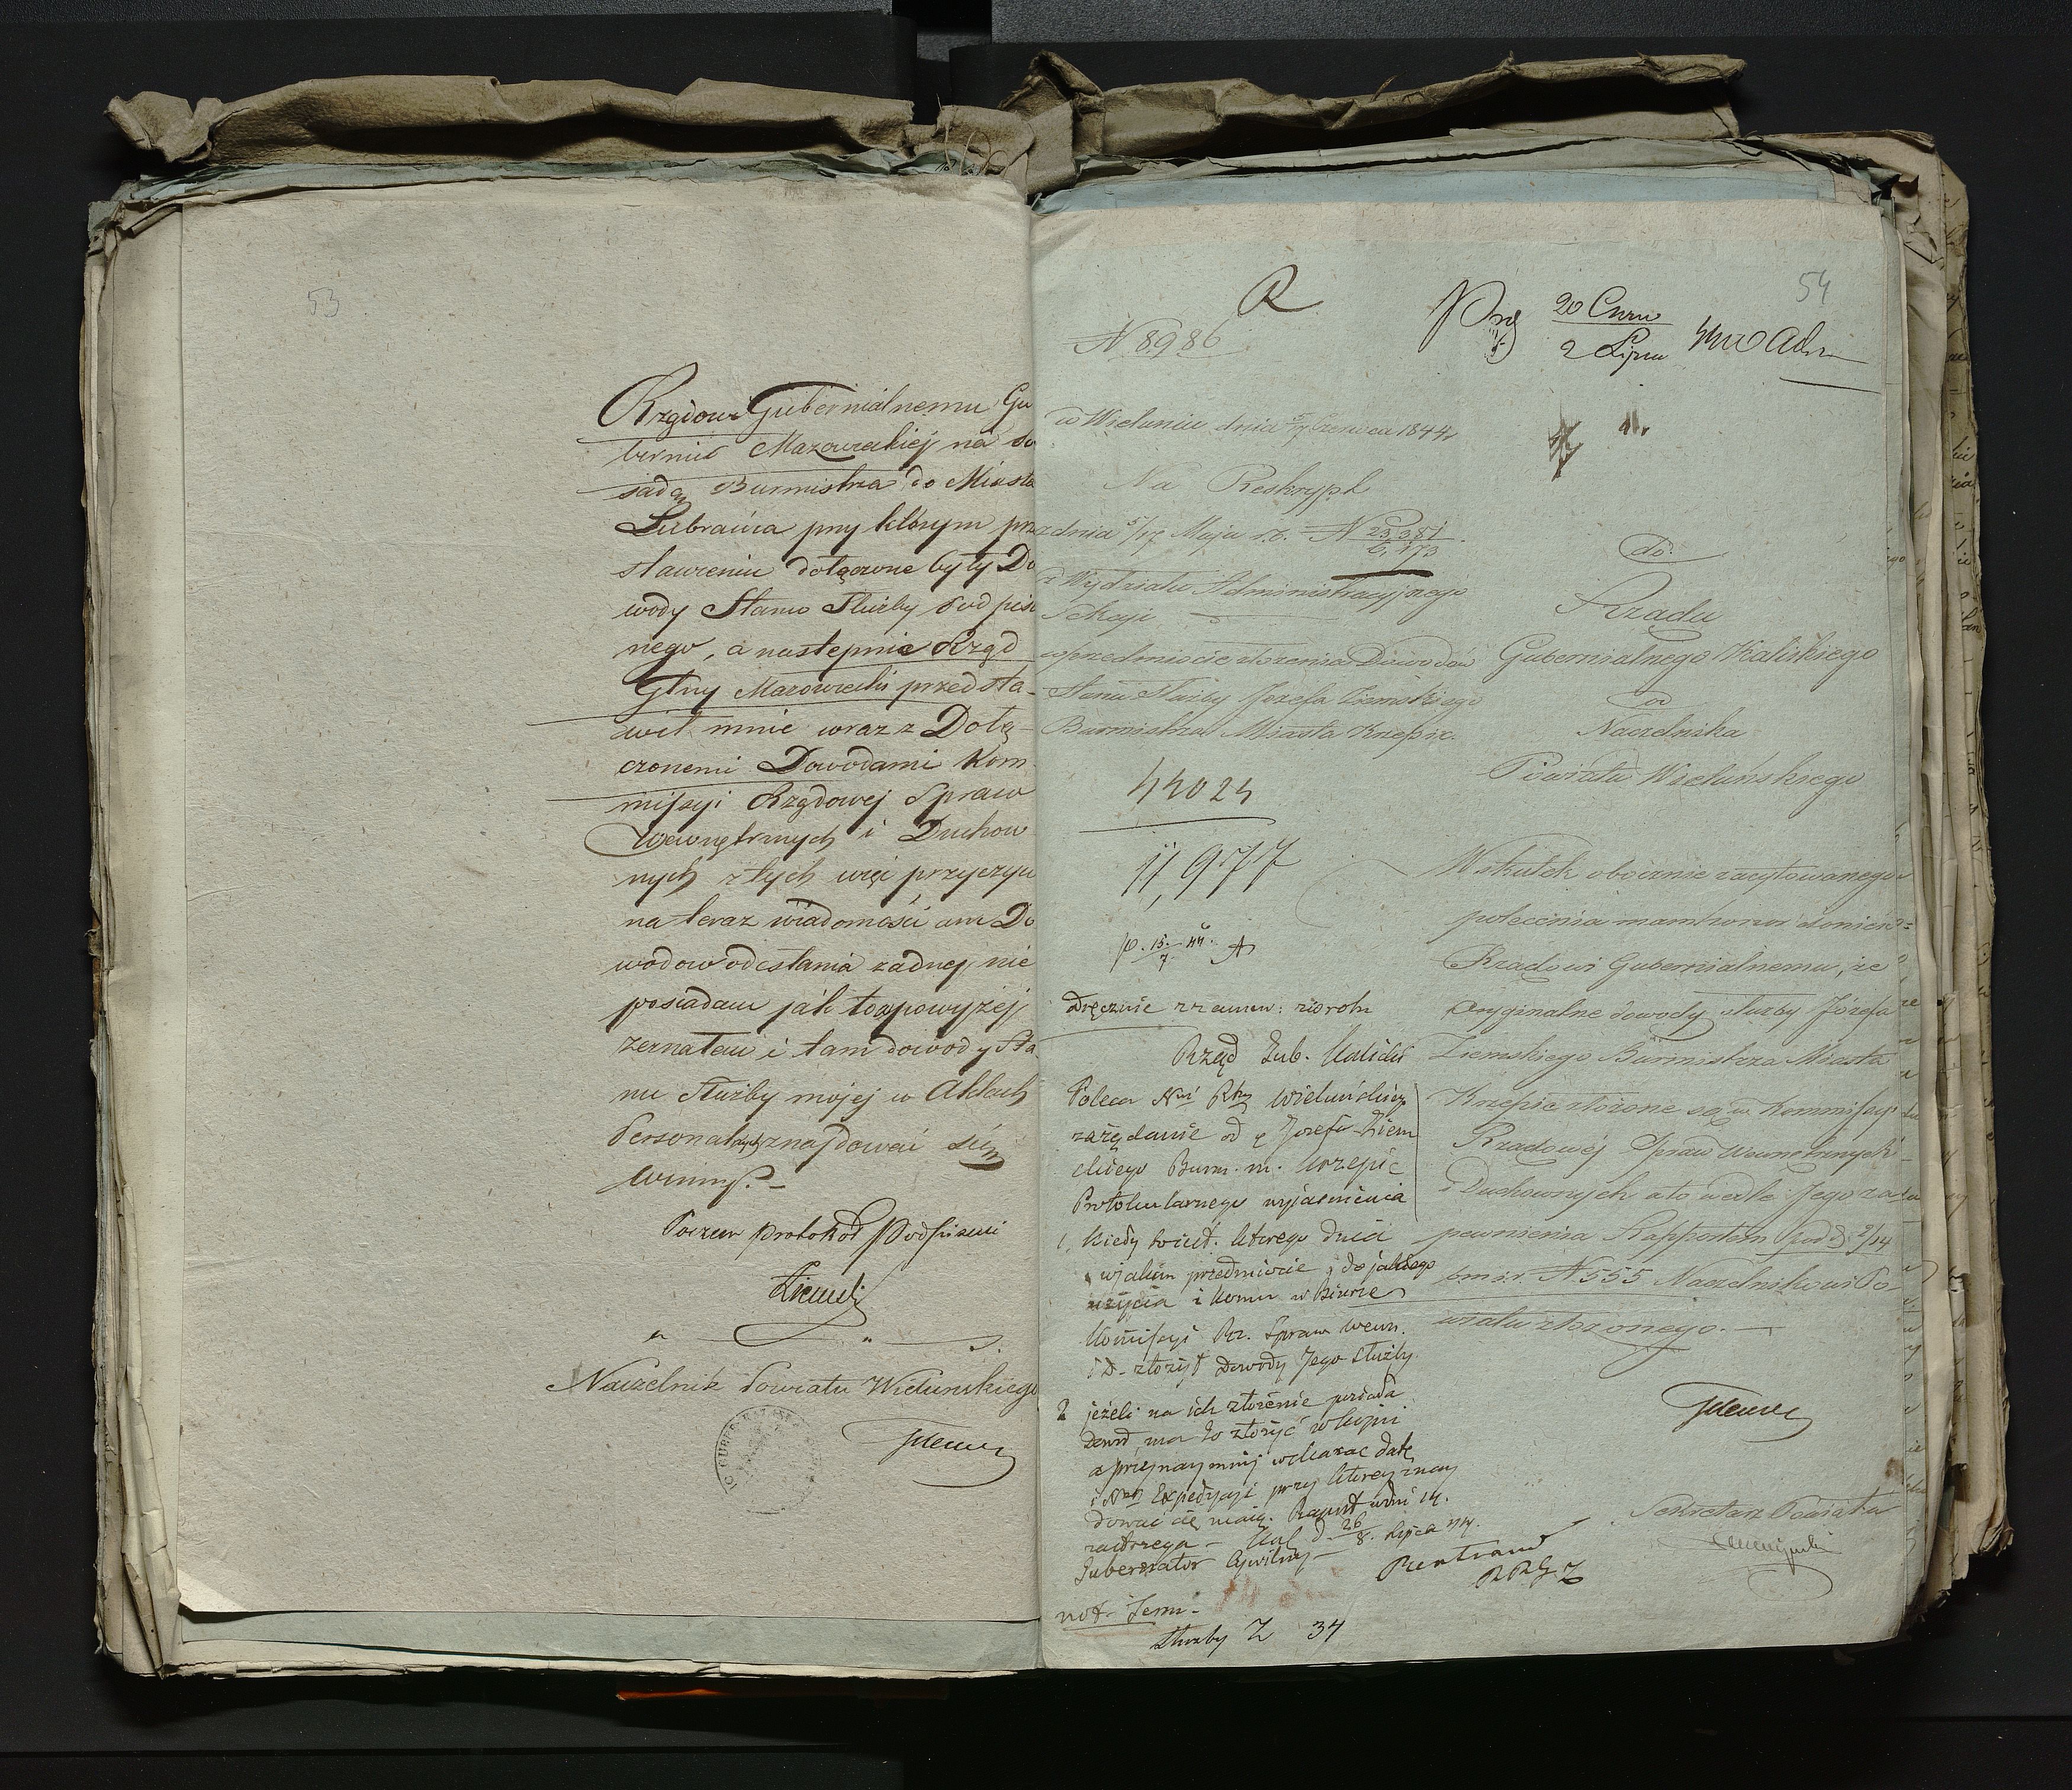 53
Rządowi Gubernialnemu Gu
bernii Mazowieckiej na po
sadę Burmistrza do Miasta
Lubrańca przy którym prze
stawieniu dołączone były Do
wody Stanu Służby podpisa
nego, a następnie Rząd
Gbny Mazowiecki przedsta-
wił mnie wraz z Dołą-
czonemi Dowodami Kom
missyi Rządowej Spraw
Wewnętrznych i Duchow
nych z tych więc przyczyn
na teraz wiadomości am Do
wodow odesłania żadnej nie
posiadam jak to powyżej
zeznałem i tam dowody Sta
nu Służby mojej w Aktach
Personalnych znajdować się
winny.
Poczem protokół Podpisani
Ziemski
Naczelnik Powiatu Wieluńskiego
54
R
N 8986
20 Czerw
2 Lipca
w Wieluniu dnia 5/17 Czerwca 1844 r
Na Reskrypt
z dnia 5/17 Maja r.b. N 23,381
6,173
z Wydziału Administracyjnego
Sekcji
w przedmiocie złożenia Dowodów
Stanu Służby Józefa Ziemskiego
Burmistrza Miasta Krzepic.
do
Rządu
Gubernialnego Kaliskiego
od
Naczelnika
Powiatu Wieluńskiego
44024
11,977
p. 15/7 44.
Wskutek obocznie zacytowanego
polecenia mam honor donieść
Rządowi Gubernialnemu, że
oryginalne dowody służby Józefa
Ziemskiego Burmistrza Miasta
Krzepic złożone są w Kommissyi
Rządowej Spraw Wewnetrznych
i Duchownych a to wedle Jego za
pewnienia Rapportem pod d. 2/14
bm i r. N 555 Naczelnikowi Po-
wiatu złożonego.
Sekretarz Powiatu
Rząd Gub. Kaliski
Poleca Nwi Ptu Wieluńskiego
zażądanie od p Józefa Ziem
skiego Burm. m. Krzepic
Protokularnego wyjaśnienia
1, kiedy którego dnia
w jakim przedmiocie i do jakiego
użycia i komu w Biurze
Kommissyi Rz. Spraw Wewn.
i D. złożył Dowody Jego służby
2 jeżeli na ich złożenie posiada
Dowód, ma to złożyć w kopii
a przynajmniej wskazać datę
i Nr Expedycyi przy której znaj
dować się mają. Raport w dni 14.
zastrzega - Kal. d. 26/8 Lipca 44.
Gubernator Cywilny
służby Z 34